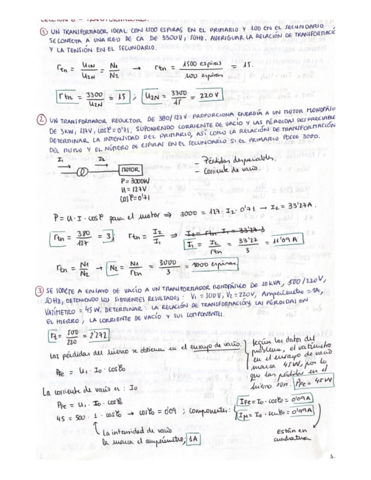 ① UN TRANSFORMADOR IDEAL CON 1500 ESPIRAS EN EL PRIMARIO Y 100 EN EL SECUNDARIO
SE CONECTA A UNA RED DE CA DE 3300V, 50HZ. AVERIGUAR LA RELACIÓN DE TRANSFORMACIÓ
Y LA TENSIÓN EN EL SECUNDARIO.
rtn = U1N/U2N = N1/N2 → rtn = 1500 espiras/100 espiras = 15.
rtn = 3300/U2N = 15 ; U2N = 3300/15 = 220V
② UN TRANSFORMADOR REDUCTOR DE 380/127V PROPORCIONA ENERGÍA A UN MOTOR MONOFÁSICO
DE 3KW, 127V, COSφ=0'71. SUPONIENDO CORRIENTE DE VACÍO Y LAS PÉRDIDAS DESPRECIABLES
DETERMINAR LA INTENSIDAD DEL PRIMARIO, ASÍ COMO LA RELACIÓN DE TRANSFORMACIÓN
DEL MISMO Y EL NÚMERO DE ESPIRAS EN EL SECUNDARIO SI EL PRIMARIO POSEE 3000.
I1 I2
MOTOR
P=3000W
U=127V
cosφ=0'71
Pérdidas despreciables.
- Corriente de vacío.
P = U · I · cosφ para el motor ⇒ 3000 = 127 · I2 · 0'71 → I2 = 33'27A.
rtn = 380/127 = 3
rtn = I2/I1
I1 = I2/rtn = 33'27/3 = 11'09 A
rtn = N1/N2 → N2 = N1/rtn = 3000/3 = 1000 espiras
③ SE SOMETE A ENSAYO DE VACÍO A UN TRANSFORMADOR MONOFÁSICO DE 10 KVA, 500/220V,
50HZ, OBTENIENDO LOS SIGUIENTES RESULTADOS: V1=500V, V2=220V, Amperímetro=1A,
VATÍMETRO=45W. DETERMINAR: LA RELACIÓN DE TRANSFORMACIÓN, LAS PÉRDIDAS EN
EL HIERRO, LA CORRIENTE DE VACÍO Y SUS COMPONENTES.
rt = 500/220 = 2'272
Las pérdidas del hierro se obtienen en el ensayo de vacío
PFe = U1 · I0 · cosφ0
Según los datos del
problema, el vatímetro
en el ensayo de vacío
marca 45W, por lo
que las pérdidas en el
hierro son. PFe = 45W
La corriente de vacío es: I0
PFe = U1 · I0 · cosφ0
45 = 500 · 1 · cosφ0 → cosφ0 = 0'09 ; componentes:
IFe = I0 · cosφ0 = 0'09 A
La intensidad de vacío
la marca el amperímetro, 1A
están en
cuadratura
1.